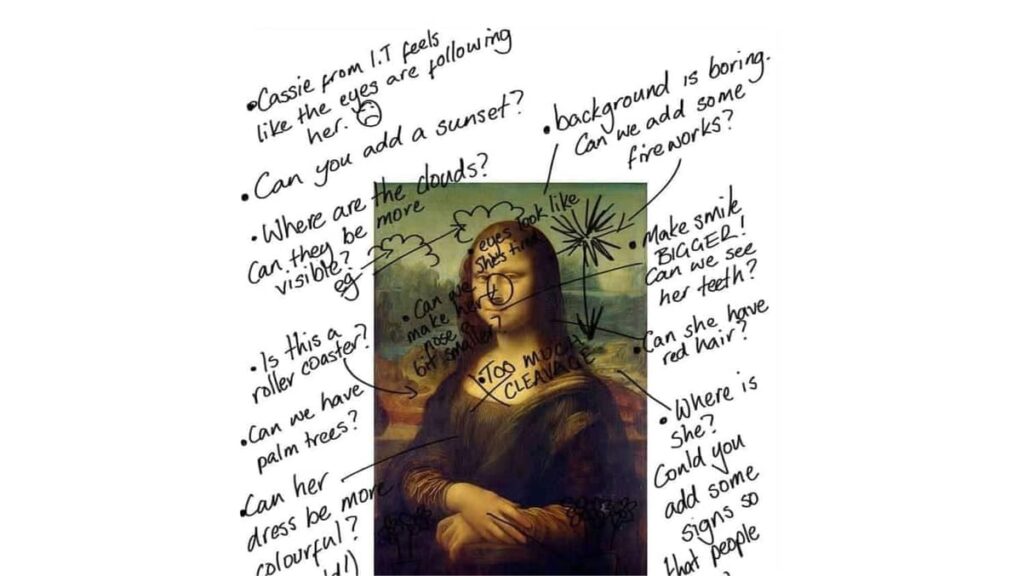 •Cassie from I.T feels
like the eyes are following
her.
•Can you add a sunset?
•Where are the clouds?
Can they be more
visible?
eg
•Is this a
roller coaster?
•Can we have
palm trees?
•Can her
dress be more
colourful?
•background is boring.
Can we add some
fireworks?
•eyes look like
she's tired
•Can we
make her
nose a
bit smaller?
•TOO MUCH
CLEAVAGE
•Make smile
BIGGER!
Can we see
her teeth?
•Can she have
red hair?
•Where is
she?
Could you
add some
signs so
that people